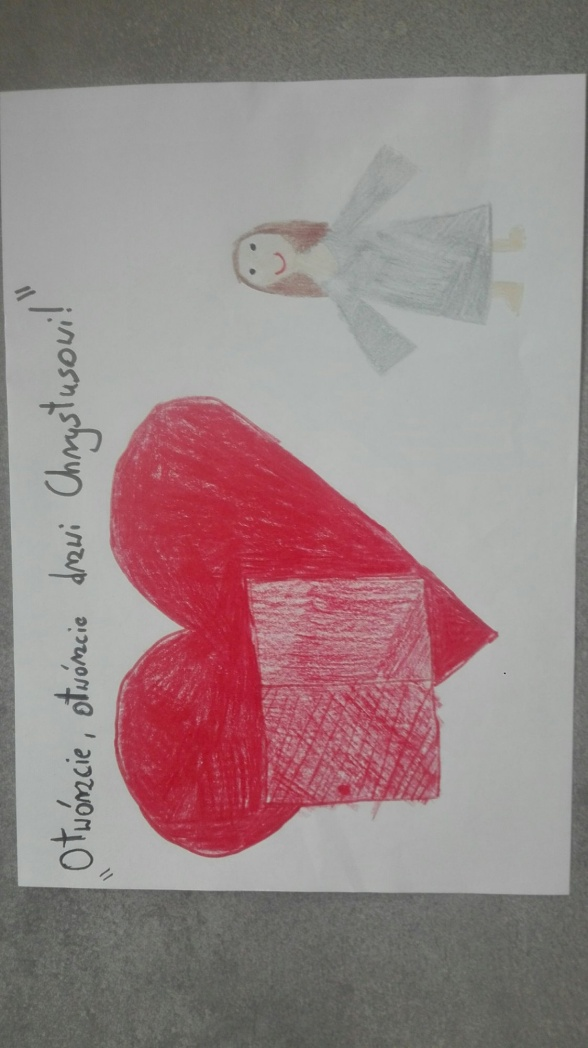 „Otwórzcie, otwórzcie drzwi Chrystusowi!”